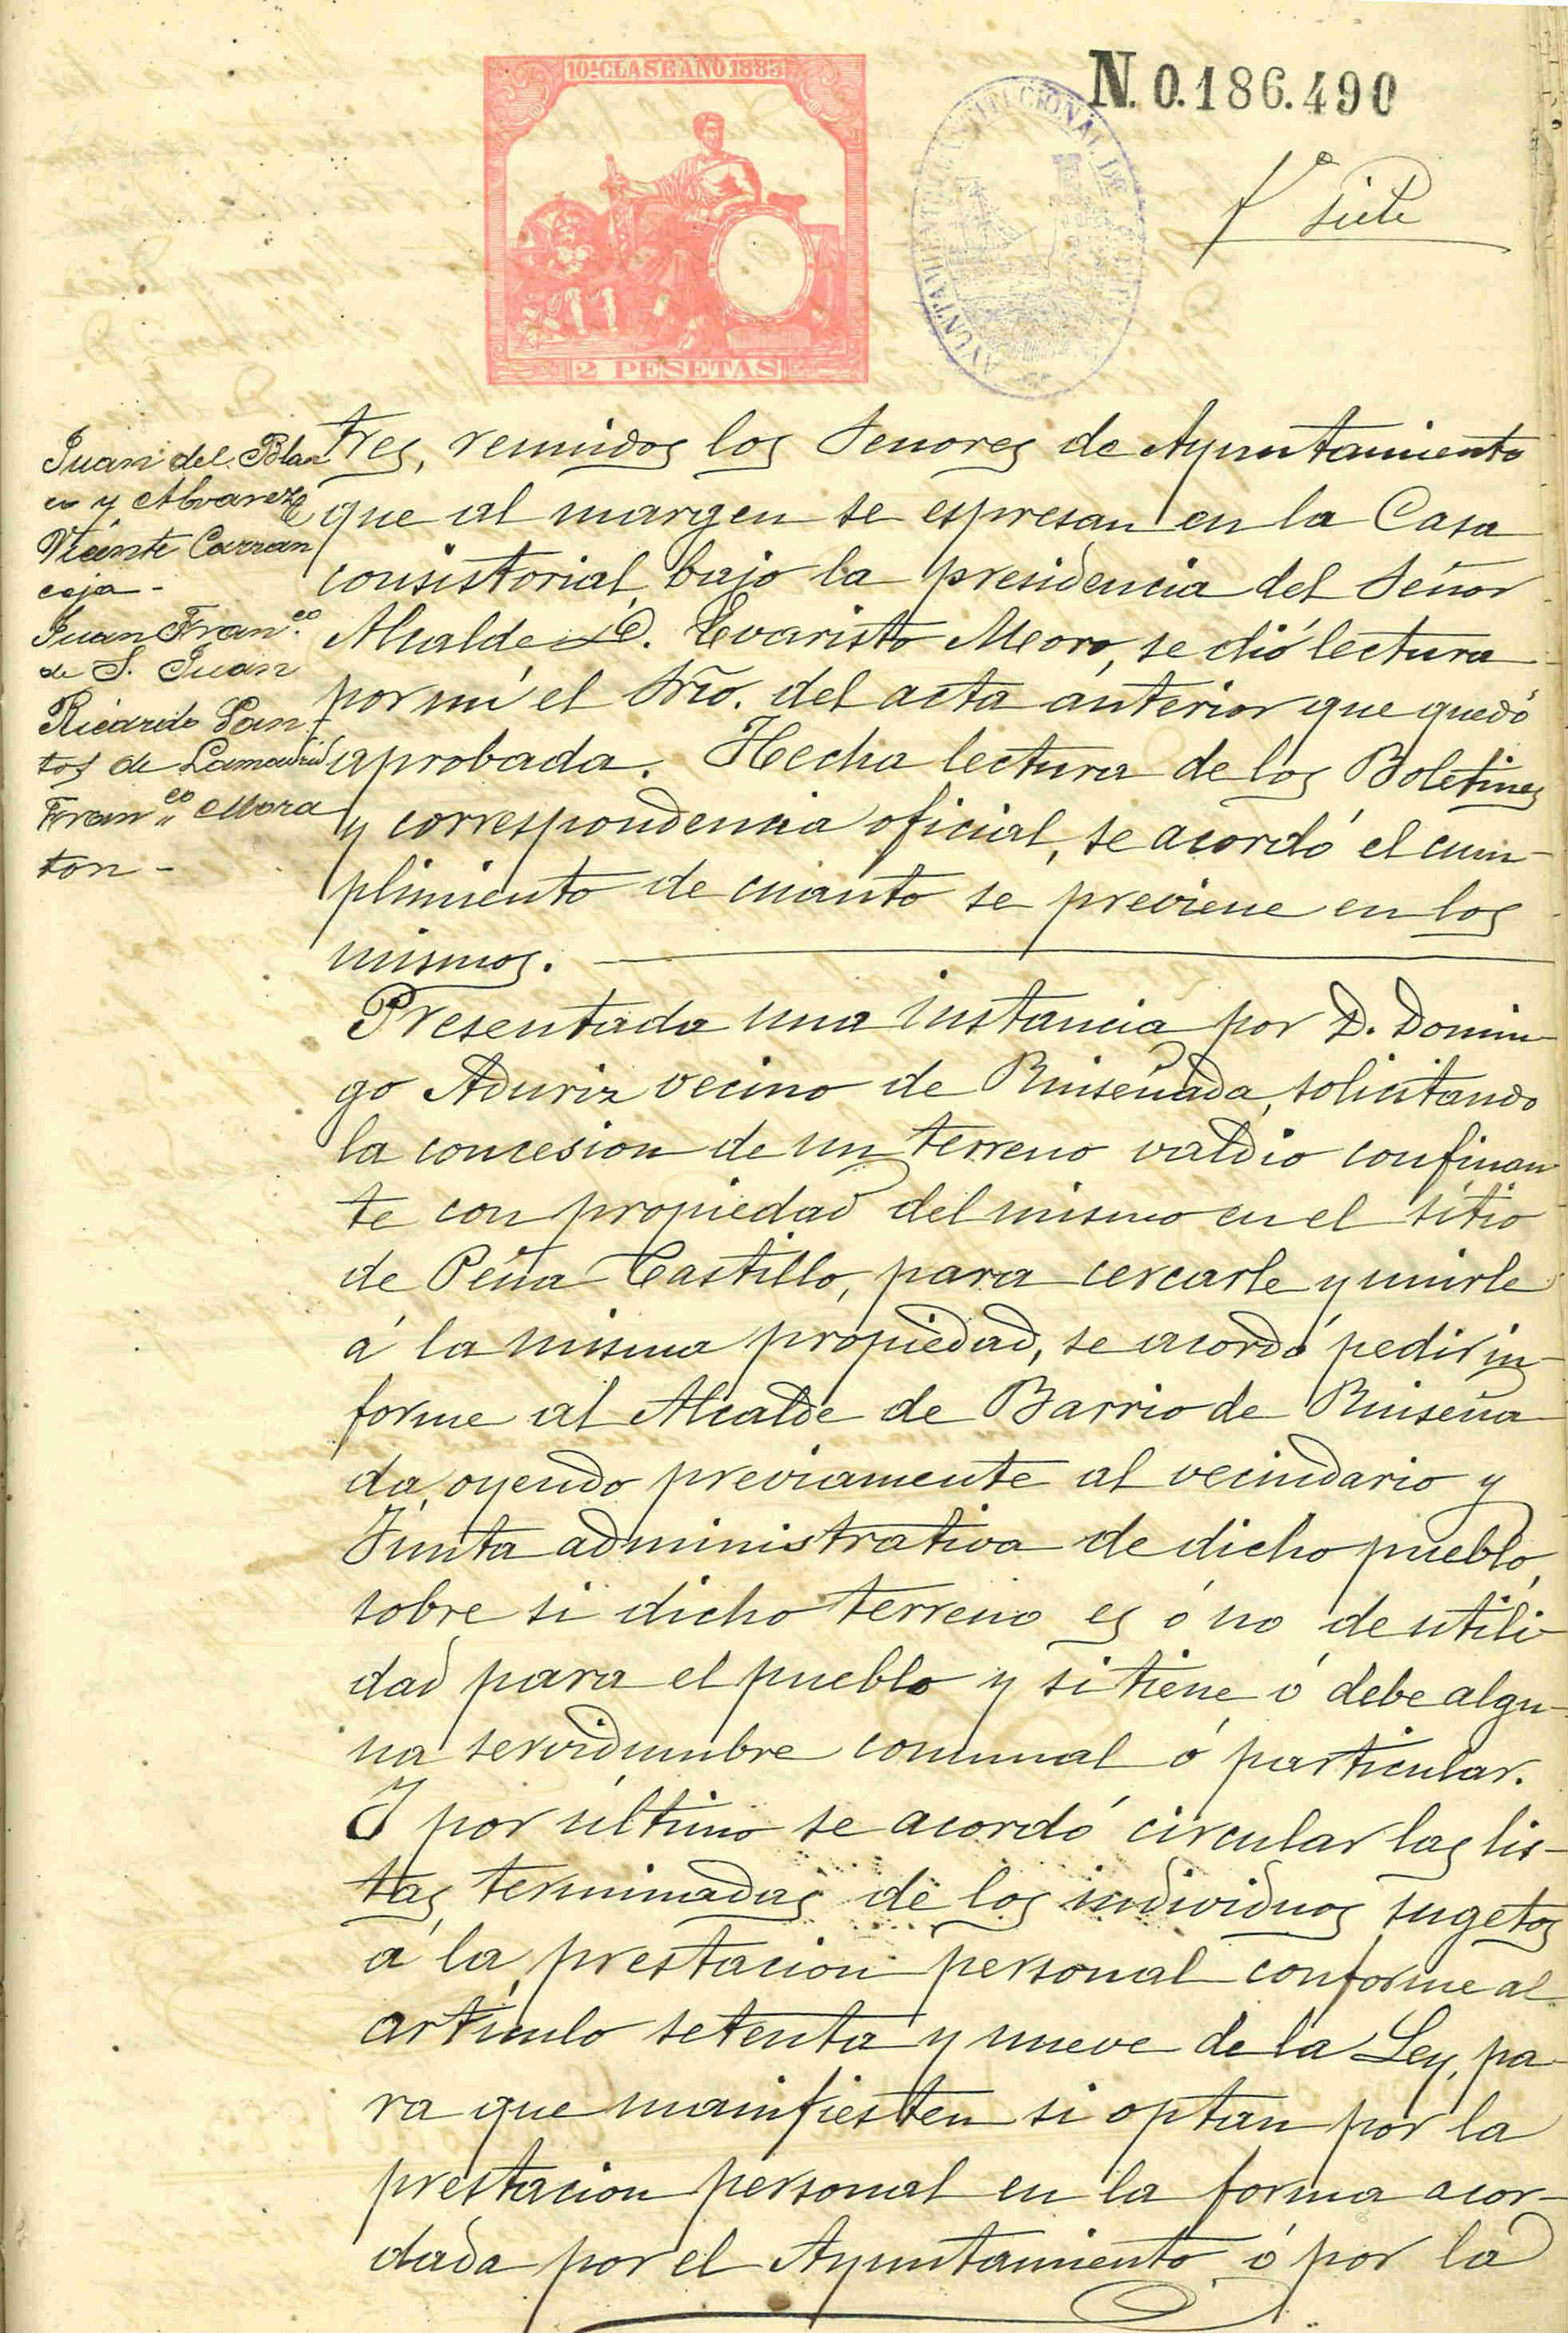 10ª CLASE AÑO 1883
2 PESETAS
N. 0.186.490
AYUNTAMIENTO CONSTITUCIONAL DE
fº siete
Juan del Blan
co y Alvarez
Vicente Carran
ceja-
Juan Franco.
de S. Juan
Ricardo San
tos de Lamadrid
Franco Mora
ton-
tres, reunidos los Señores de Ayuntamiento
que al margen se espresan en la Casa
consistorial, bajo la presidencia del Señor
Alcalde D. Evaristo Meoro, se dió lectura
por mi el Srio. del acta anterior que quedó
aprobada. Hecha lectura de los Boletines
y correspondencia oficial, se acordó el cum-
plimiento de cuanto se previene en los
mismos.
Presentada una instancia por D. Domin-
go Aduriz vecino de Ruiseñada, solicitando
la concesion de un terreno valdio confinan
te con propiedad del mismo en el sitio
de Peña Castillo, para cercarle y unirle
á la misma propiedad, se acordó pedir in-
forme al Alcalde de Barrio de Ruiseña
da, oyendo previamente al vecindario y
Junta administrativa de dicho pueblo,
sobre si dicho terreno es ó no de utili-
dad para el pueblo y si tiene ó debe algu-
na servidumbre comunal ó particular.
Y por último se acordó circular las lis-
tas terminadas de los individuos sugetos
á la prestacion personal conforme al
artículo setenta y nueve de la Ley, pa-
ra que manifiesten si optan por la
prestacion personal en la forma acor-
dada por el Ayuntamiento ó por la